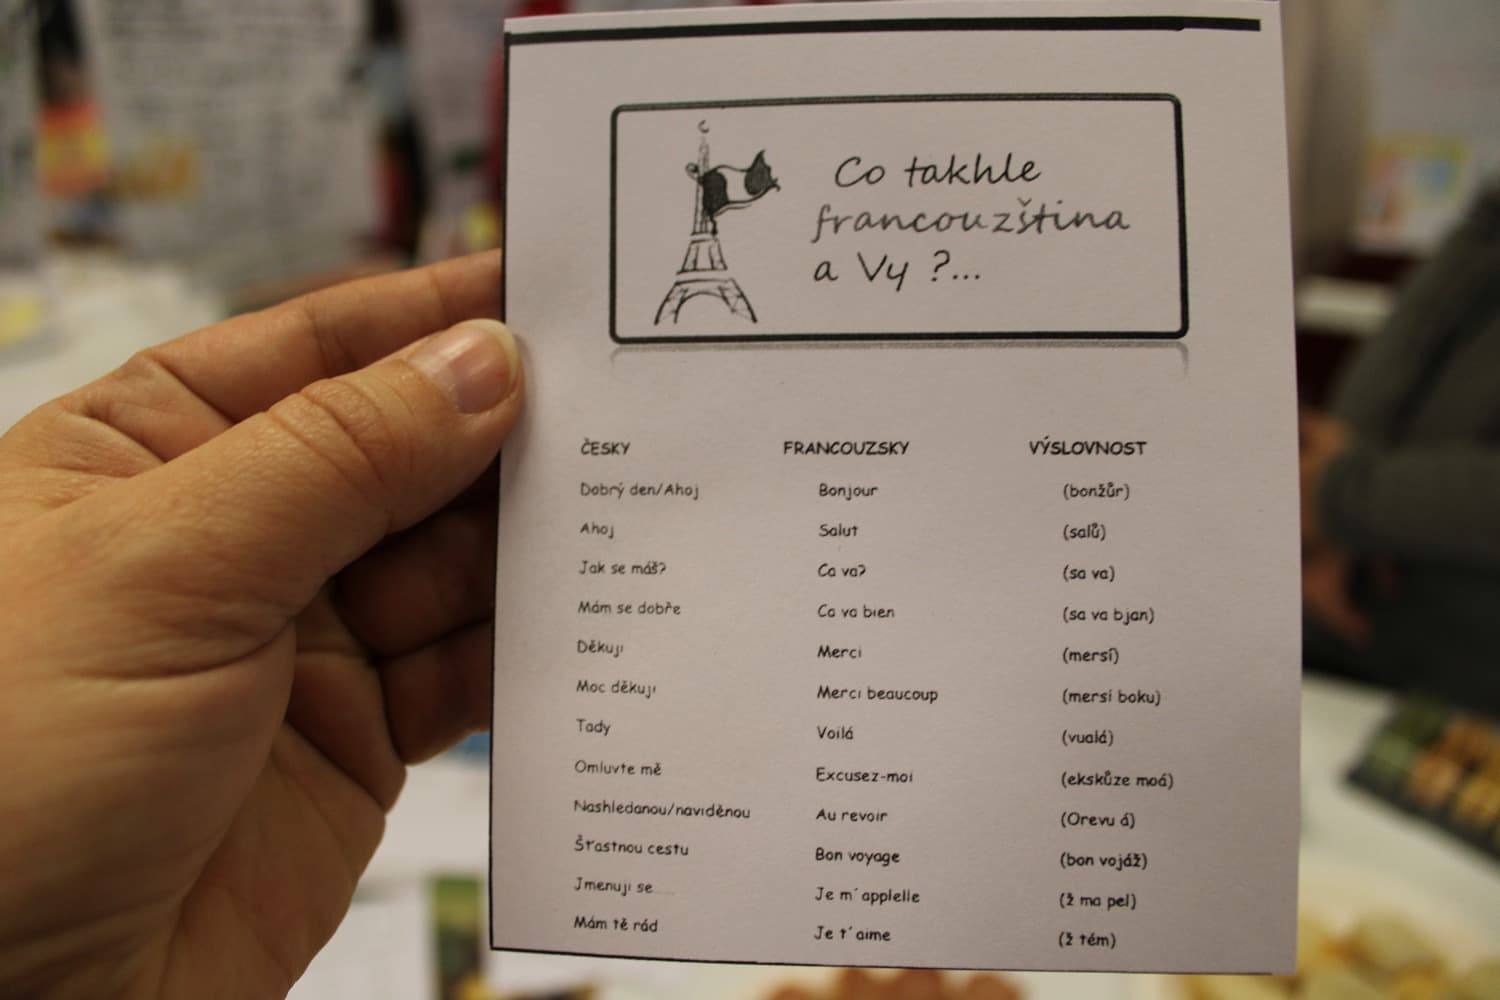 Co takhle
francouzština
a Vy ?...
ČESKY FRANCOUZSKY VÝSLOVNOST
Dobrý den/Ahoj Bonjour (bonžůr)
Ahoj Salut (salů)
Jak se máš? Ca va? (sa va)
Mám se dobře Ca va bien (sa va bjan)
Děkuji Merci (mersí)
Moc děkuji Merci beaucoup (mersí boku)
Tady Voilá (vualá)
Omluvte mě Excusez-moi (ekskůze moá)
Nashledanou/naviděnou Au revoir (Orevu á)
Šťastnou cestu Bon voyage (bon vojáž)
Jmenuji se...... Je m´applelle (ž ma pel)
Mám tě rád Je t´aime (ž tém)